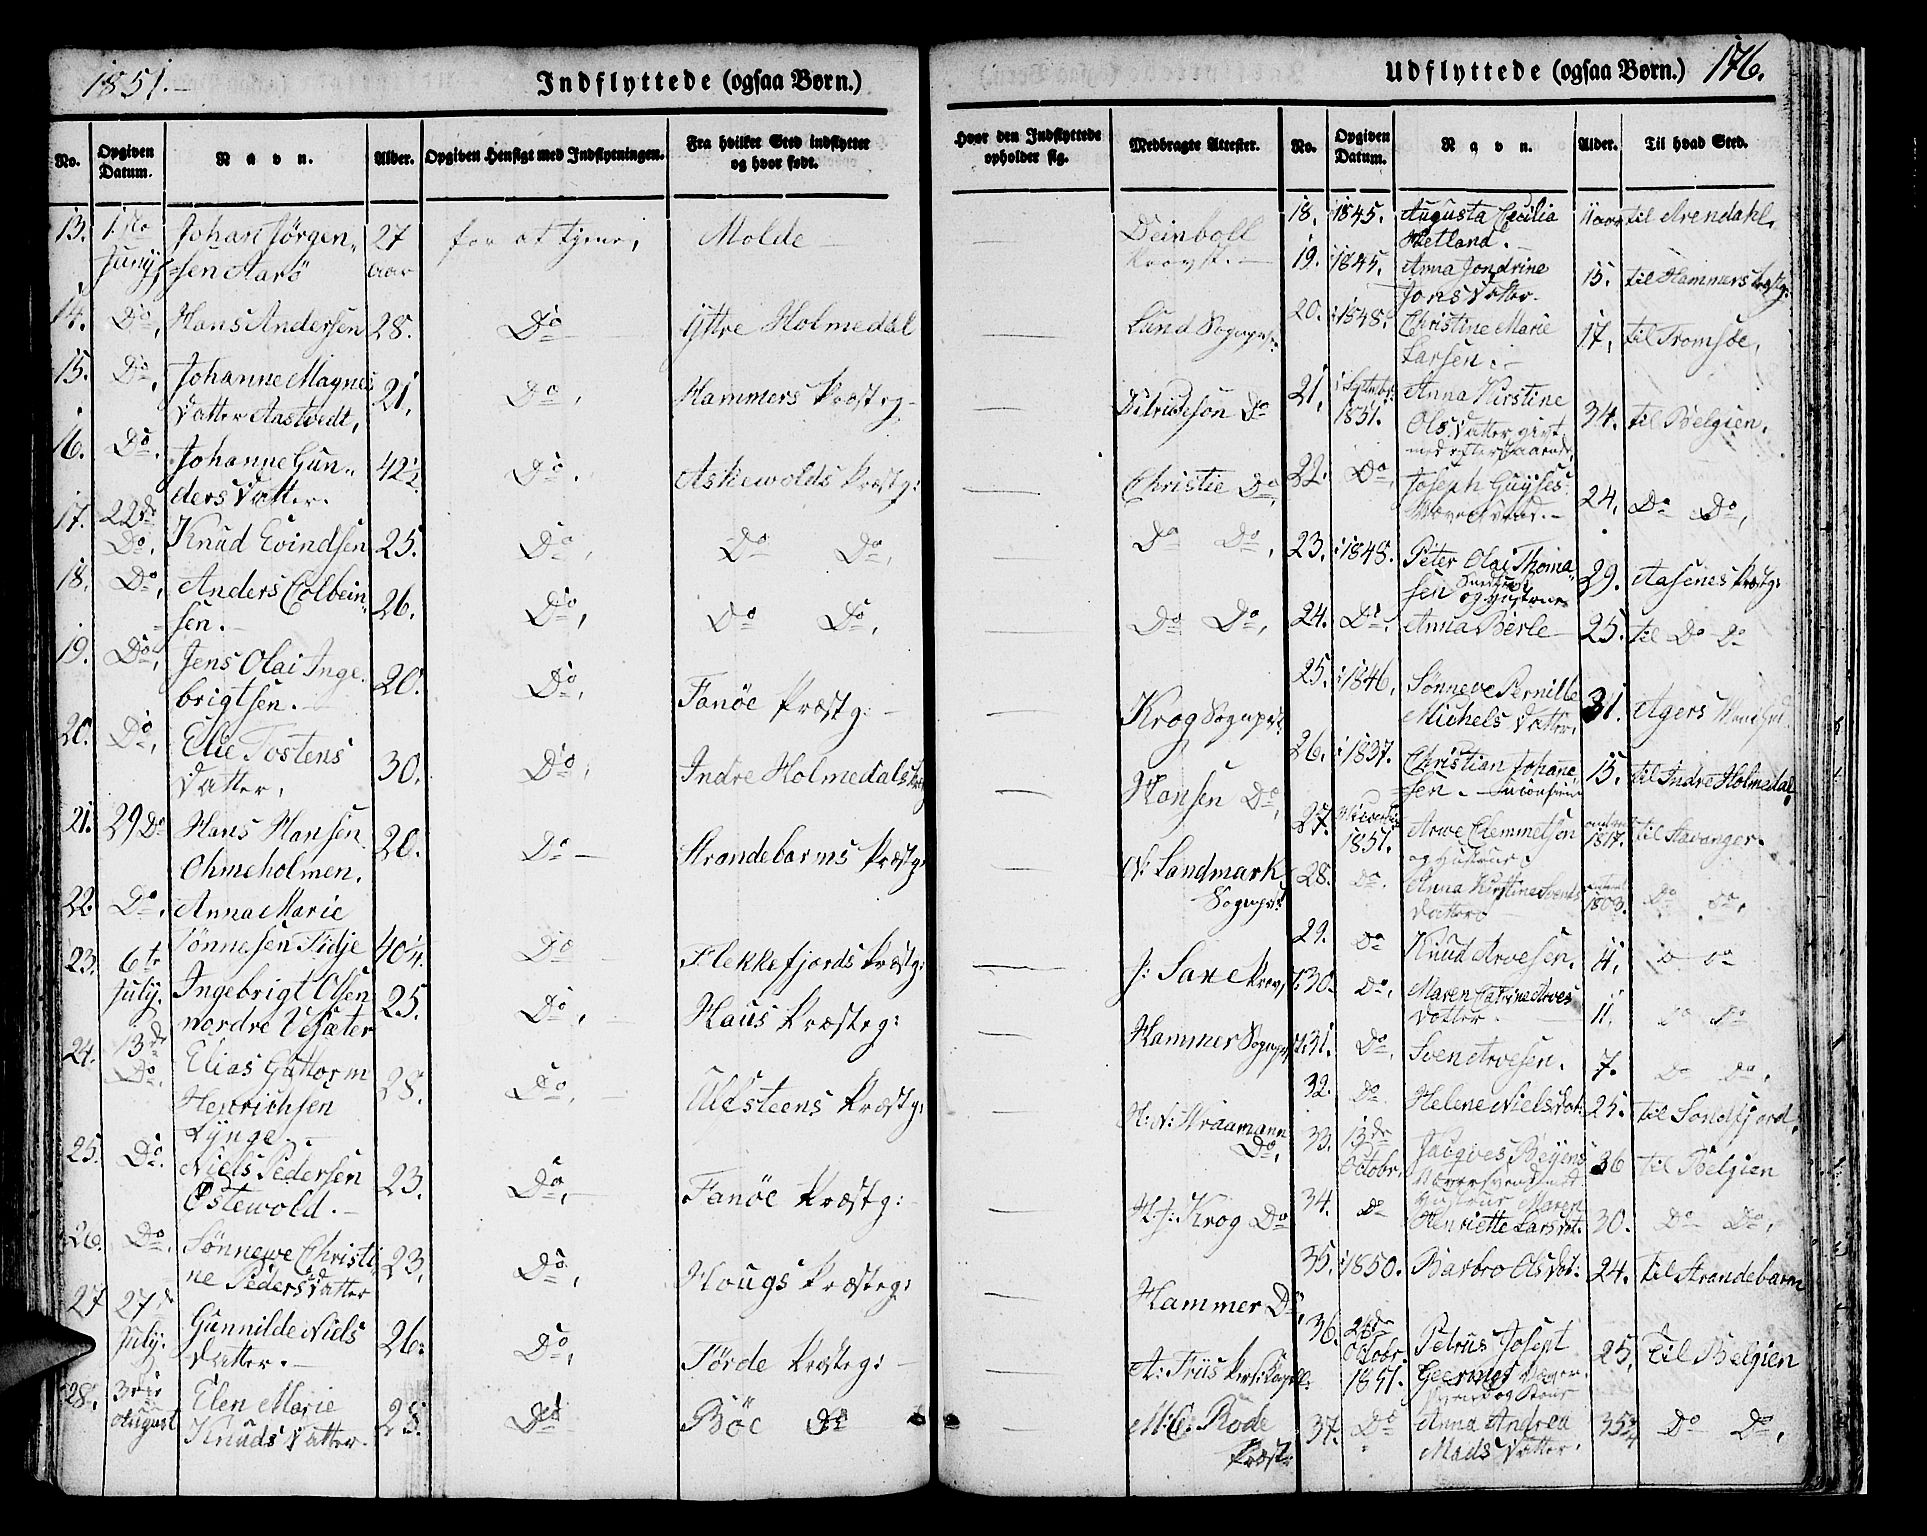 1851.
Indflyttede (ogsaa Børn.)
No. Opgiven Datum. Navn. Alder. Opgiven Hensigt med Indflytningen. Fra hvilket Sted indflyttet og hvor født. Hvor den Indflyttede opholder sig. Medbragte Attester.
13. Johan Jørgen- 27 for at tjene, Molde — Deinboll
Junij sen Aarö aar Provst.
14. Do, Hans Andersen 28. Do Yttre Holmedal — Lund Sognepr:
15. Do, Johanne Magnes
Datter Aastvedt, 21, Do, Hammers Præstg. — Do
16. Do. Johanne Gun-
ders Datter. 42½. Do. Askewolds Præstg: — Christie Do,
17. 22de
Do, Knud Evindsen 25. Do, Do Do, — Do Do,
18. Do, Anders Colbein-
sen. 26. Do, Do Do, — Do Do,
19. Do, Jens Olai Inge-
brigtsen. 20. Do, Fanöe Præstg: — Krog Sognepr:
20. Do, Elie Tostens
Datter, 30. Do, Indre Holmedals — Hansen Do,
21. 29 Do Hans Hansen
Ohmeholmen. 20. Do — Strandebarms Præstg: — N: Landmark
Sognepr:
22. Do, Anna Marie
Tönnesen Tidje 40¼. Do Flekkefjords Præstg: — J: Saxe Provst
23. 6te
July. Ingebrigt Olsen
nordre Vesæter 25. Do, Haus Præsteg: — Hammer Sognepr:
24. 13de
Do. Elias Guttorm
Henrichsen
Lynge. 28. Do, Præstg: — Do,
25. Do. Niels Pedersen
Ostewold. 23. Do, Fanöe Præstg: — H. J: Krog Do
26. Do. Sönnewe Christi-
ne Pedersdatter 23, Do, Hougs Præsteg: — Hammer Do,
27 27de
July. Gunnilde Niels
Datter. 26. Do, Förde Præsteg: — A: Friis
28. 3die
August Elen Marie
Knuds Datter. Do Böe Do — M: C. Bode
Præst
Udflyttede (ogsaa Børn.) 176.
No. Opgiven Datum. Navn. Alder. Til hvad Sted.
18. 1845. Augusta Cecilia
Hetland. 11 aar til Arendahl.
19. 1845. Anna Jondrine
Jons Datter. 15. til Hammers Præstg:
20. 1848. Christine Marie
Larsen. 17, til Tromsöe,
21, Septebr:
1851. Anna Kirstine
Ols Datter givt
med efterstaaende, 34. til Belgien.
22. Do, Joseph Guyses
24, Do Do,
23. 1848. Peter Olai Thoma-
sen og Hustrue 29. Aasenes Præstg:
24. Do. Anna Berle 25. til Do Do
25. 1846. Sönneve Pernille
Michels Datter. 31. Agers
26. 1837. Christian Johane-
sen. 15. til Indre Holmedal,
27. 1851. Arwe Clemmetsen
og Hustrue 1817. til Stavanger.
28. Do. Anna Kirstine Svends
Datter 1803. Do Do,
29. Do Knud Arvesen. 4. Do Do
30. Do. Maren Catrine Arves
Datter. 11. Do Do
31. Do, Sven Arvesen. 7. Do Do,
32. Do Helene Niels Dat: 25. til Söndfjord,
33. 13de
Octobr. Jacques Beyens 36 til Belgien
34. Do Hustrue Maren
Henriette Lars Dt. 30. Do Do,
35. 1850. Barbro Ols Dat: 24. til Strandebarm
36. Octobr.
1851. Petrus Joseph
25. til Belgien
37. Do Anna Andrea
Mads Datter. 35¾ Do Do,